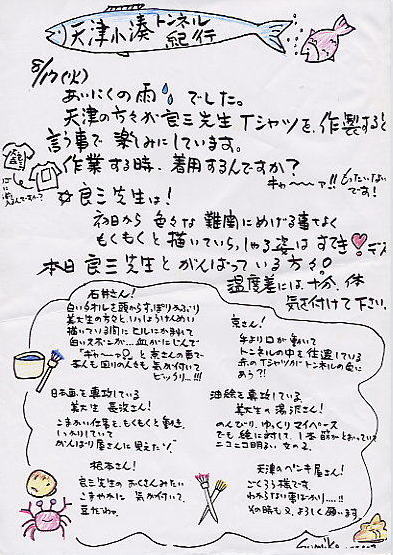 天津小湊トンネル紀行
8/17(火)
あいにくの雨でした。
天津の方々が良三先生Tシャツを、作製すると
言う事で楽しみにしています。
作業する時、着用するんですか?
キャ〜〜ァ!!もったいない
です!
良三先生は!
初日から色々な難関にめげる事なく
もくもくと描いていらっしゃる姿はすてき♥デス
本日良三先生とがんばっている方々。
温度差には十分、体
気を付けて下さい。
石井さん!
白いタオルを頭からすっぽりかぶり
美大生の方々と、いっしょうけんめい
描いている間にヒルにか刺されて
白いズボンが...血がにじんで
「ギャ〜っ」と京さんの声で
本人も回りの人も気が付いて
ビックリ...!!!
京さん!
手より口が動いて
トンネルの中を往還している
赤のTシャツがトンネルの色に
あう?!
日本画を専攻している
美大生 長沢さん!
こまかい仕事を、もくもくと動き、
しっかりしていて
がんばり屋さんに見えたゾ
油絵を専攻している
美大生の湯沢さん!
のんびり、ゆっくりマイペース
でも絵に対して、1本筋がとおっていて
ニコニコ明るい女の子。
根本さん!
良三先生のおくさんみたい
こまやかに気が付いて、
豆だわ。
天津のペンキ屋さん!
ごくろう様です。
わからない事ばかり....!!
その時も又、よろしく願います
Sumiko